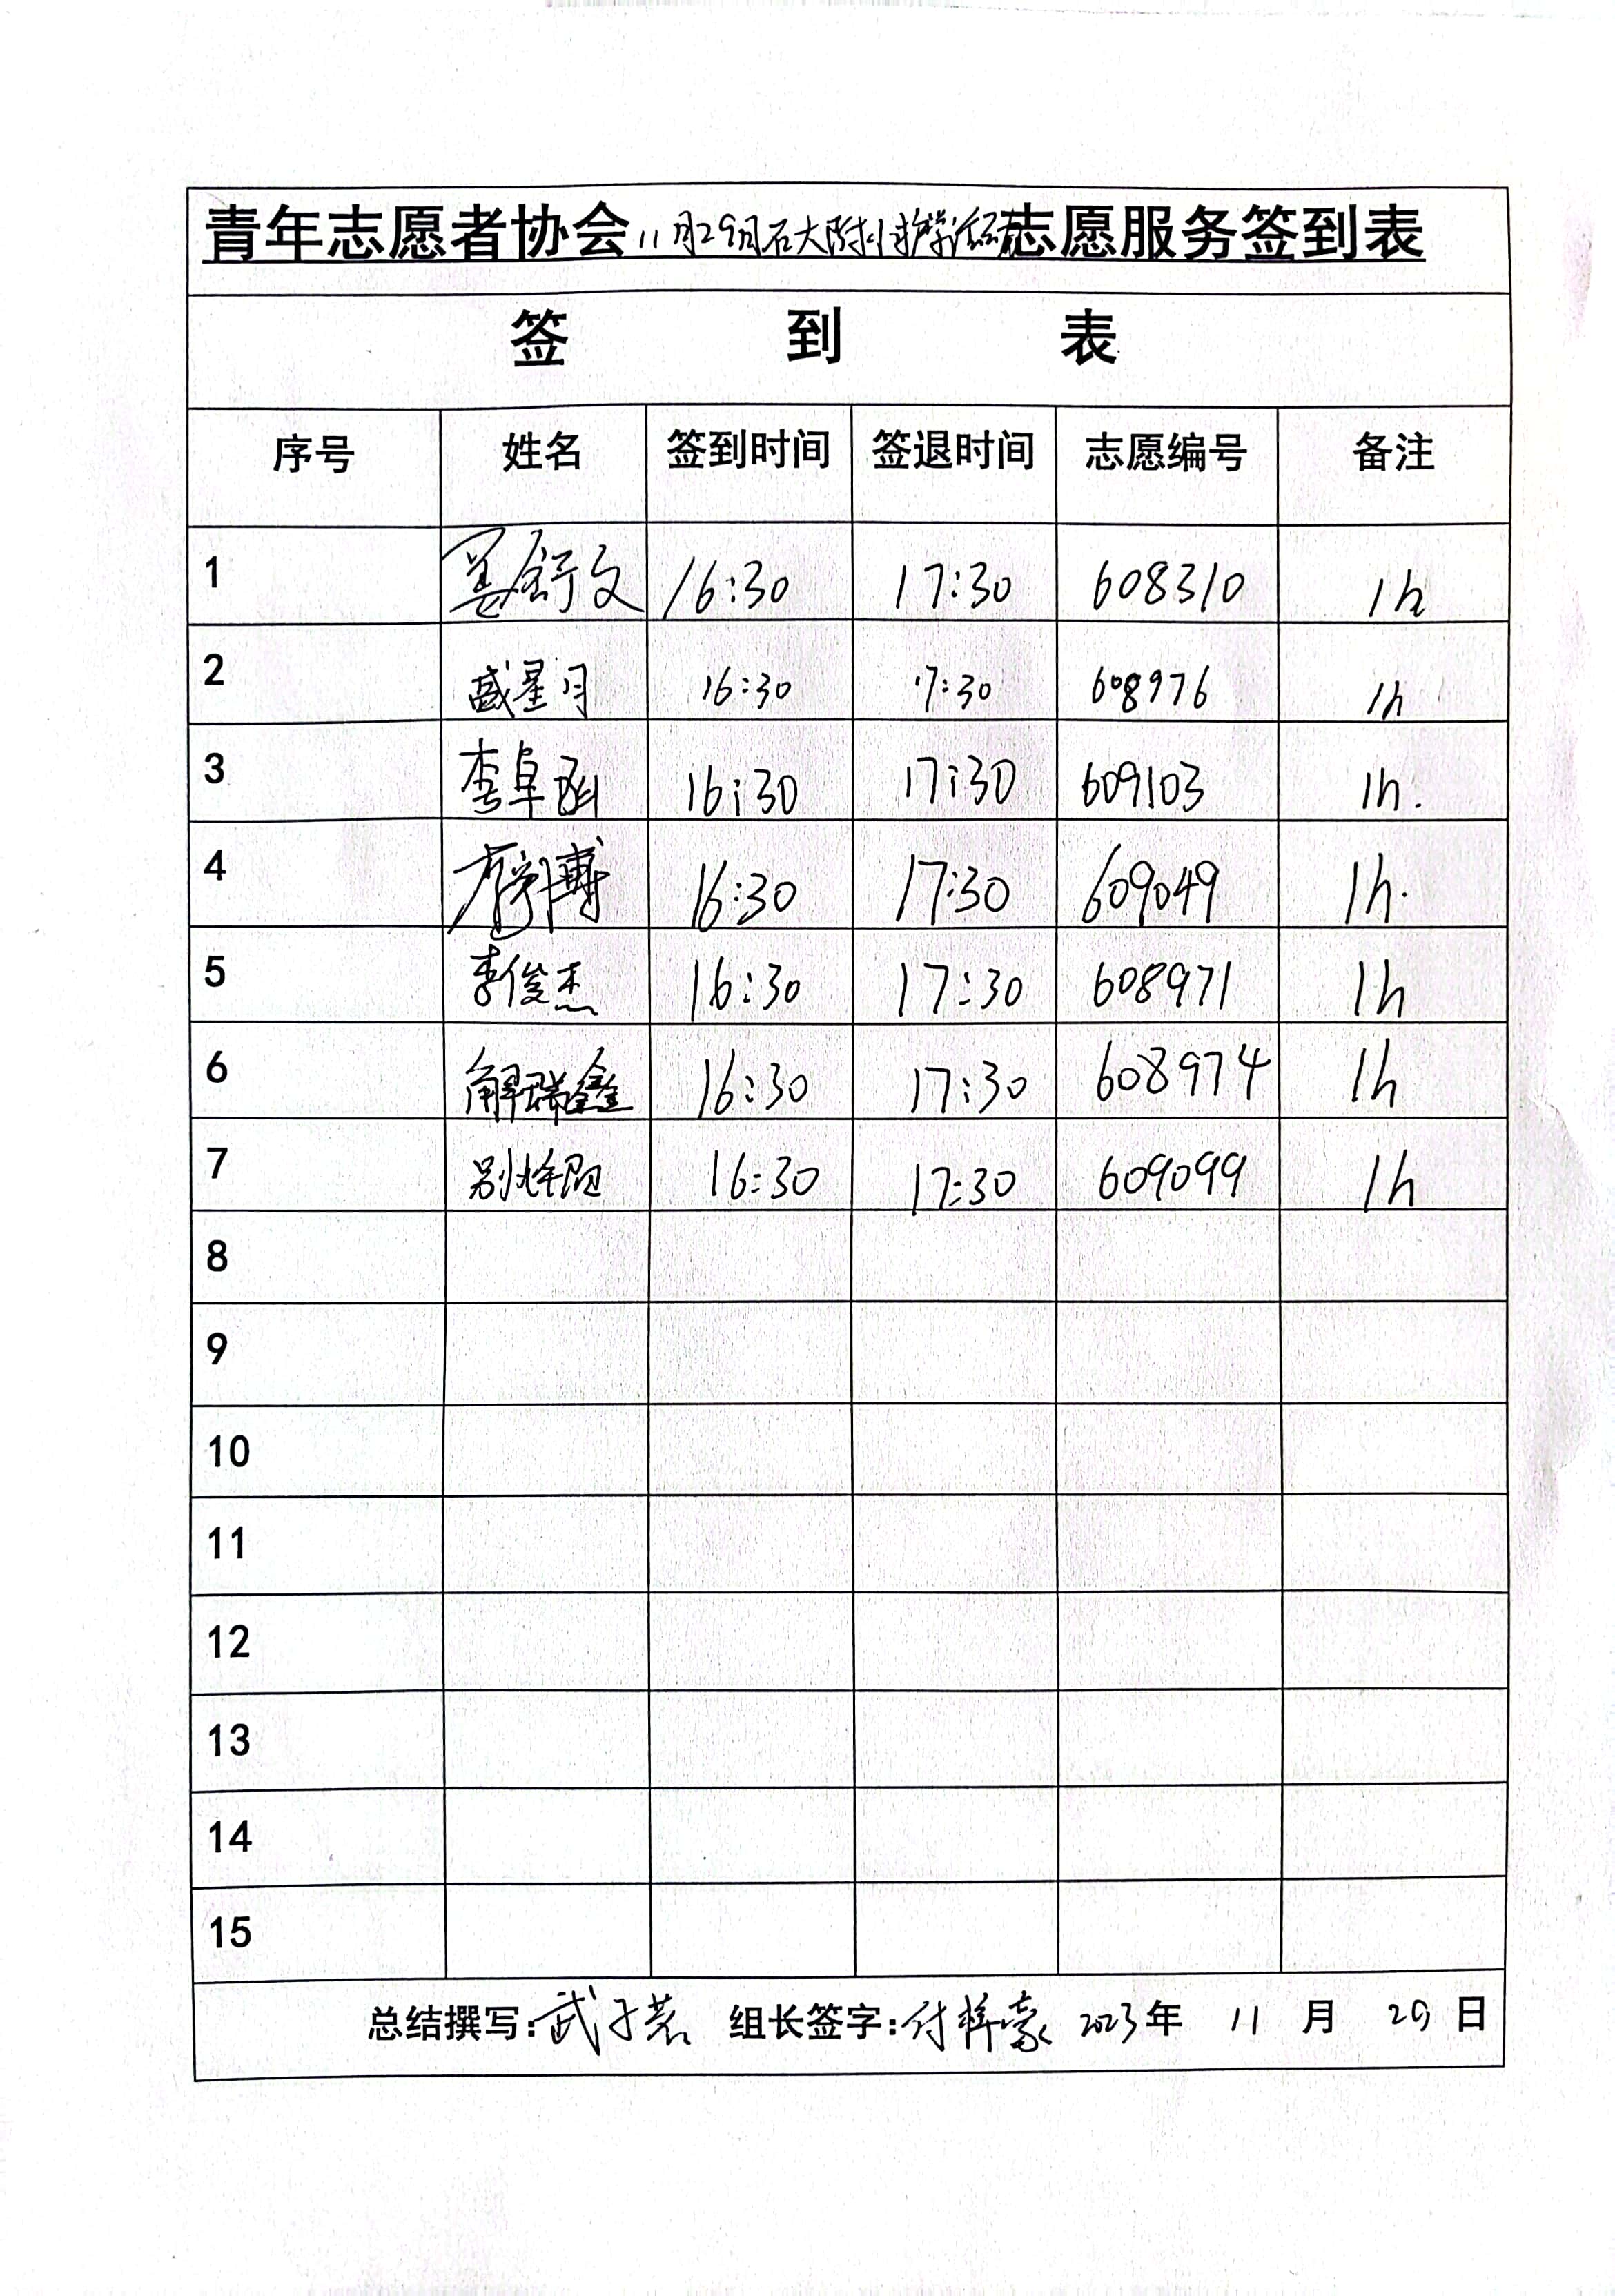 青年志愿者协会11月29日石大附小护学活动志愿服务签到表
签 到 表
序号 姓名 签到时间 签退时间 志愿编号 备注
1 姜舒文 16:30 17:30 608310 1h
2 臧星月 16:30 17:30 608976 1h
3 李卓函 16:30 17:30 609103 1h.
4 16:30 17:30 609049 1h.
5 李俊杰 16:30 17:30 608971 1h
6 解瑞鑫 16:30 17:30 608974 1h
7 16:30 17:30 609099 1h
8
9
10
11
12
13
14
15
总结撰写:武子茗 组长签字:付梓豪 2023年 11 月 29 日